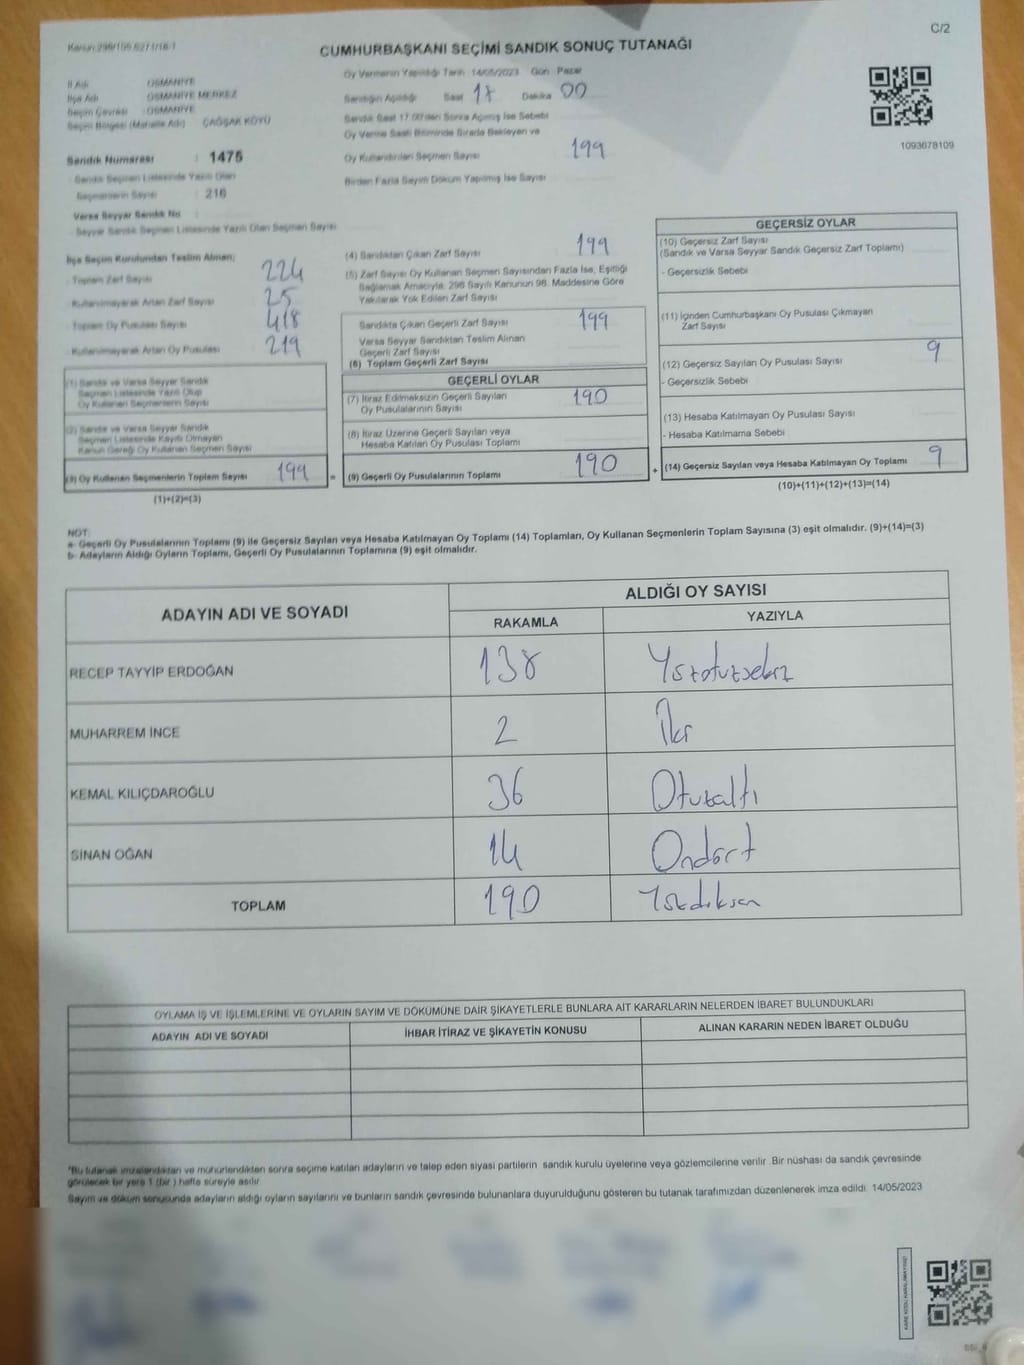 C/2
CUMHURBAŞKANI SEÇİMİ SANDIK SONUÇ TUTANAĞI
Oy Vermenin Yapıldığı Tarih 14/05/2023 Gün Pazar
İl Adı OSMANİYE
İlçe Adı OSMANİYE MERKEZ
Seçim Çevresi : OSMANİYE
Seçim Bölgesi (Mahalle Adı) ÇAĞŞAK KÖYÜ
Sandık Numarası : 1475
Sandık Seçmen Listesinde Yazılı Olan
Seçmenlerin Sayısı : 216
Varsa Seyyar Sandık No
Seyyar Sandık Seçmen Listesinde Yazılı Olan Seçmen Sayısı
Sandığın Açıldığı Saat 17 Dakika 00
Sandık Saat 17.00'den Sonra Açılmış İse Sebebi
Oy Verme Saati Bitiminde Sırada Bekleyen ve
Oy Kullandırılan Seçmen Sayısı 199
Birden Fazla Sayım Döküm Yapılmış İse Sayısı
1093678109
İlçe Seçim Kurulundan Teslim Alınan;
Toplam Zarf Sayısı 224
Kullanılmayarak Artan Zarf Sayısı 25
Toplam Oy Pusulası Sayısı 418
Kullanılmayarak Artan Oy Pusulası 219
(1) Sandık ve Varsa Seyyar Sandık
Seçmen Listesinde Yazılı Olup
Oy Kullanan Seçmenlerin Sayısı
(2) Sandık ve Varsa Seyyar Sandık
Seçmen Listesinde Kayıtlı Olmayan
Kanun Gereği Oy Kullanan Seçmen Sayısı
(3) Oy Kullanan Seçmenlerin Toplam Sayısı 199 =
(1)+(2)=(3)
(4) Sandıktan Çıkan Zarf Sayısı 199
(5) Zarf Sayısı Oy Kullanan Seçmen Sayısından Fazla İse, Eşitliği
Sağlamak Amacıyla, 298 Sayılı Kanunun 98. Maddesine Göre
Yakılarak Yok Edilen Zarf Sayısı
Sandıkta Çıkan Geçerli Zarf Sayısı 199
Varsa Seyyar Sandıktan Teslim Alınan
Geçerli Zarf Sayısı
(6) Toplam Geçerli Zarf Sayısı
GEÇERLİ OYLAR
(7) İtiraz Edilmeksizin Geçerli Sayılan
Oy Pusulalarının Sayısı 190
(8) İtiraz Üzerine Geçerli Sayılan veya
Hesaba Katılan Oy Pusulası Toplamı
(9) Geçerli Oy Pusulalarının Toplamı 190 +
GEÇERSİZ OYLAR
(10) Geçersiz Zarf Sayısı
(Sandık ve Varsa Seyyar Sandık Geçersiz Zarf Toplamı)
- Geçersizlik Sebebi
(11) İçinden Cumhurbaşkanı Oy Pusulası Çıkmayan
Zarf Sayısı
(12) Geçersiz Sayılan Oy Pusulası Sayısı 9
- Geçersizlik Sebebi
(13) Hesaba Katılmayan Oy Pusulası Sayısı
- Hesaba Katılmama Sebebi
(14) Geçersiz Sayılan veya Hesaba Katılmayan Oy Toplamı 9
(10)+(11)+(12)+(13)=(14)
NOT:
a- Geçerli Oy Pusulalarının Toplamı (9) ile Geçersiz Sayılan veya Hesaba Katılmayan Oy Toplamı (14) Toplamları, Oy Kullanan Seçmenlerin Toplam Sayısına (3) eşit olmalıdır. (9)+(14)=(3)
b- Adayların Aldığı Oyların Toplamı, Geçerli Oy Pusulalarının Toplamına (9) eşit olmalıdır.
ADAYIN ADI VE SOYADI ALDIĞI OY SAYISI
RAKAMLA YAZIYLA
RECEP TAYYİP ERDOĞAN 138 Yüzotuzsekiz
MUHARREM İNCE 2 İki
KEMAL KILIÇDAROĞLU 36 Otuzaltı
SİNAN OĞAN 14 Ondört
TOPLAM 190 Yüzdoksan
OYLAMA İŞ VE İŞLEMLERİNE VE OYLARIN SAYIM VE DÖKÜMÜNE DAİR ŞİKAYETLERLE BUNLARA AİT KARARLARIN NELERDEN İBARET BULUNDUKLARI
ADAYIN ADI VE SOYADI İHBAR İTİRAZ VE ŞİKAYETİN KONUSU ALINAN KARARIN NEDEN İBARET OLDUĞU
*Bu tutanak imzalandıktan ve mühürlendikten sonra seçime katılan adayların ve talep eden siyasi partilerin sandık kurulu üyelerine veya gözlemcilerine verilir. Bir nüshası da sandık çevresinde
görülecek bir yere 1 (bir) hafta süreyle asılır.
Sayım ve döküm sonucunda adayların aldığı oyların sayılarını ve bunların sandık çevresinde bulunanlara duyurulduğunu gösteren bu tutanak tarafımızdan düzenlenerek imza edildi. 14/05/2023